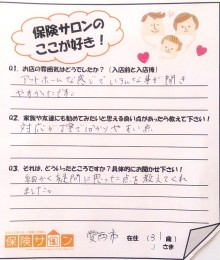 保険サロンの
ここが好き！
Q1. お店の雰囲気はどうでしたか？（入店前と入店後）
アットホームな感じで いろんな事が聞き
やすかったです。
Q2. 家族や友達にも勧めてみたいと思える良い点があったら教えて下さい！
対応が丁寧で分かりやすい点
Q3. それは、どういったところですか？具体的にお聞かせ下さい！
細かく疑問に思った点を教えてくれ
ました。
保険サロン
愛西市 在住 （31 歳）
さま